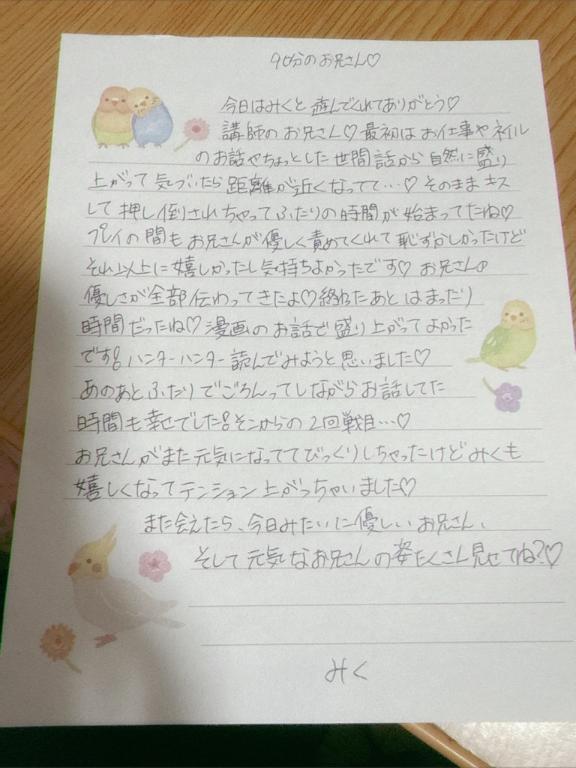 90分のお兄さん♡
今日はみくと遊んでくれてありがとう♡
講師のお兄さん♡最初はお仕事やネイル
のお話やちょっとした世間話から自然に盛り
上がって気づいたら距離が近くなってて…♡そのままキス
して押し倒されちゃってふたりの時間が始まってたね♡
プレイの間もお兄さんが優しく責めてくれて恥ずかしかったけど
それ以上に嬉しかったし気持ちよかったです♡お兄さんの
優しさが全部伝わってきたよ♡終わったあとはまったり
時間だったね♡漫画のお話で盛り上がってよかった
です!ハンターハンター読んでみようと思いました♡
あのあとふたりでごろんってしながらお話してた
時間も幸せでした!そこからの2回戦目…♡
お兄さんがまた元気になっててびっくりしちゃったけどみくも
嬉しくなってテンション上がっちゃいました♡
また会えたら、今日みたいに優しいお兄さん、
そして元気なお兄さんの姿たくさん見せてね?♡
みく